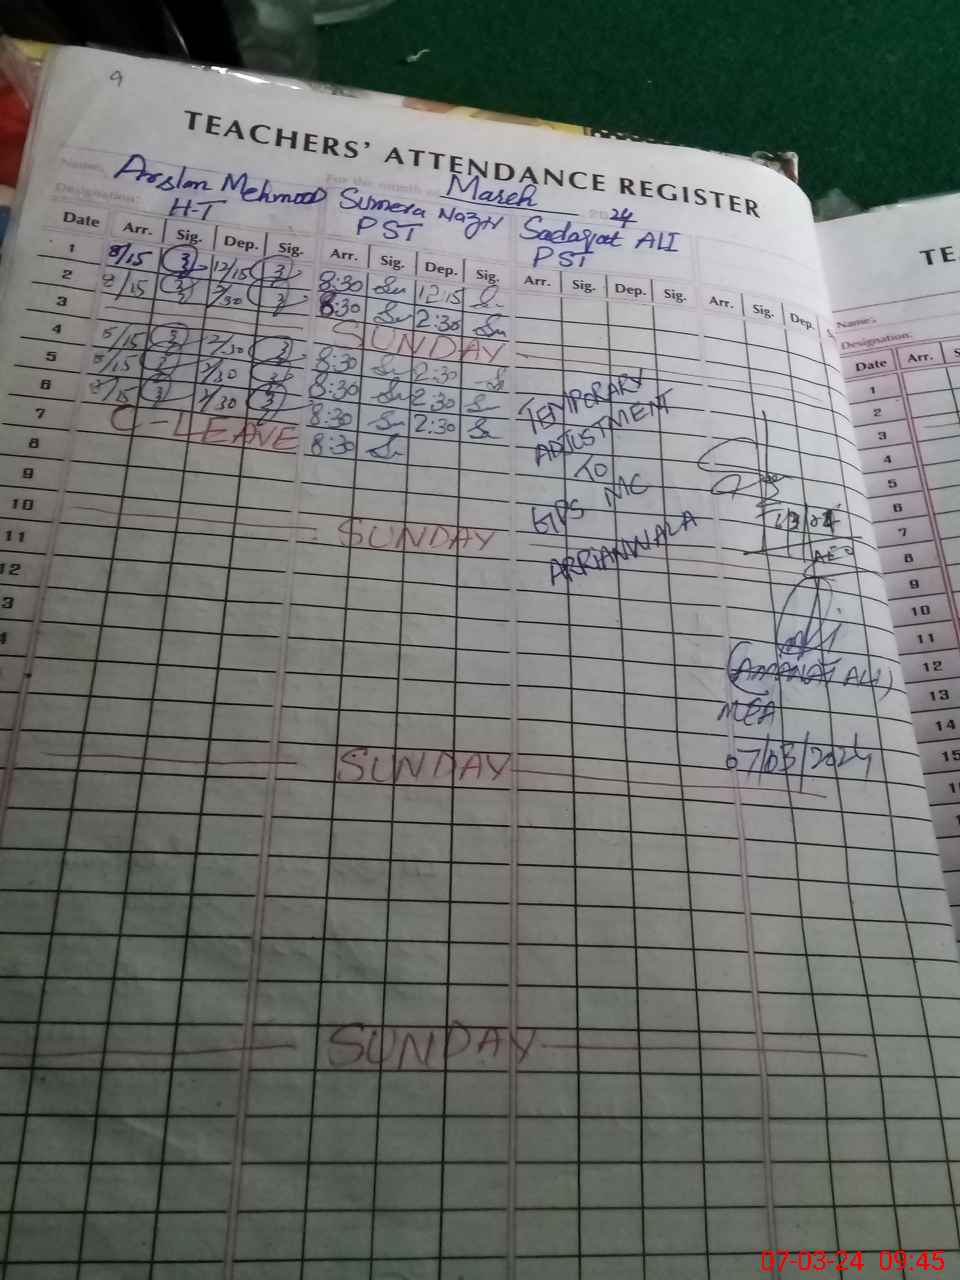 9
TEACHERS' ATTENDANCE REGISTER
Name: Arslan Mehmood Sumera Nazir Sadaqat ALI
For the month of March 2024
Designation: H-T PST PST
Date Arr. Sig. Dep. Sig. Arr. Sig. Dep. Sig. Arr. Sig. Dep. Sig. Arr. Sig. Dep.
1 8/15 12/15 8:30 12:15
2 8/15 2/30 8:30 2:30
3 SUNDAY
4 8/15 2/30 8:30 2:30
5 8/15 2/30 8:30 2:30
6 8/15 2/30 8:30 2:30
7 C-LEAVE 8:30
8
9
10 SUNDAY
11
12
3
4
TEMPORARY
ADJUSTMENT
TO
GPS MC
ARRIANWALA
AEO
(AMANAT ALI)
MEA
07/03/2024
SUNDAY
SUNDAY
TE
Name:
Designation:
Date Arr. S
1
2
3
4
5
6
7
8
9
10
11
12
13
14
15
07-03-24 09:45